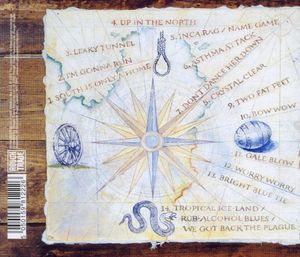 4. UP IN THE NORTH
3. LEAKY TUNNEL
5. INCA RAG / NAME GAME
2. I'M GONNA RUN
6. ASTHMA ATTACK
1. SOUTH IS ONLY A HOME
7. DON'T DANCE HER DOWN
8. CRYSTAL CLEAR
9. TWO FAT FEET
10. BOW WOW
11. GALE BLOW
12. WORRY WORRY
13. BRIGHT BLUE TIE
14. TROPICAL ICE-LAND /
RUB-ALCOHOL BLUES /
WE GOT BACK THE PLAGUE
ROUGH
TRADE